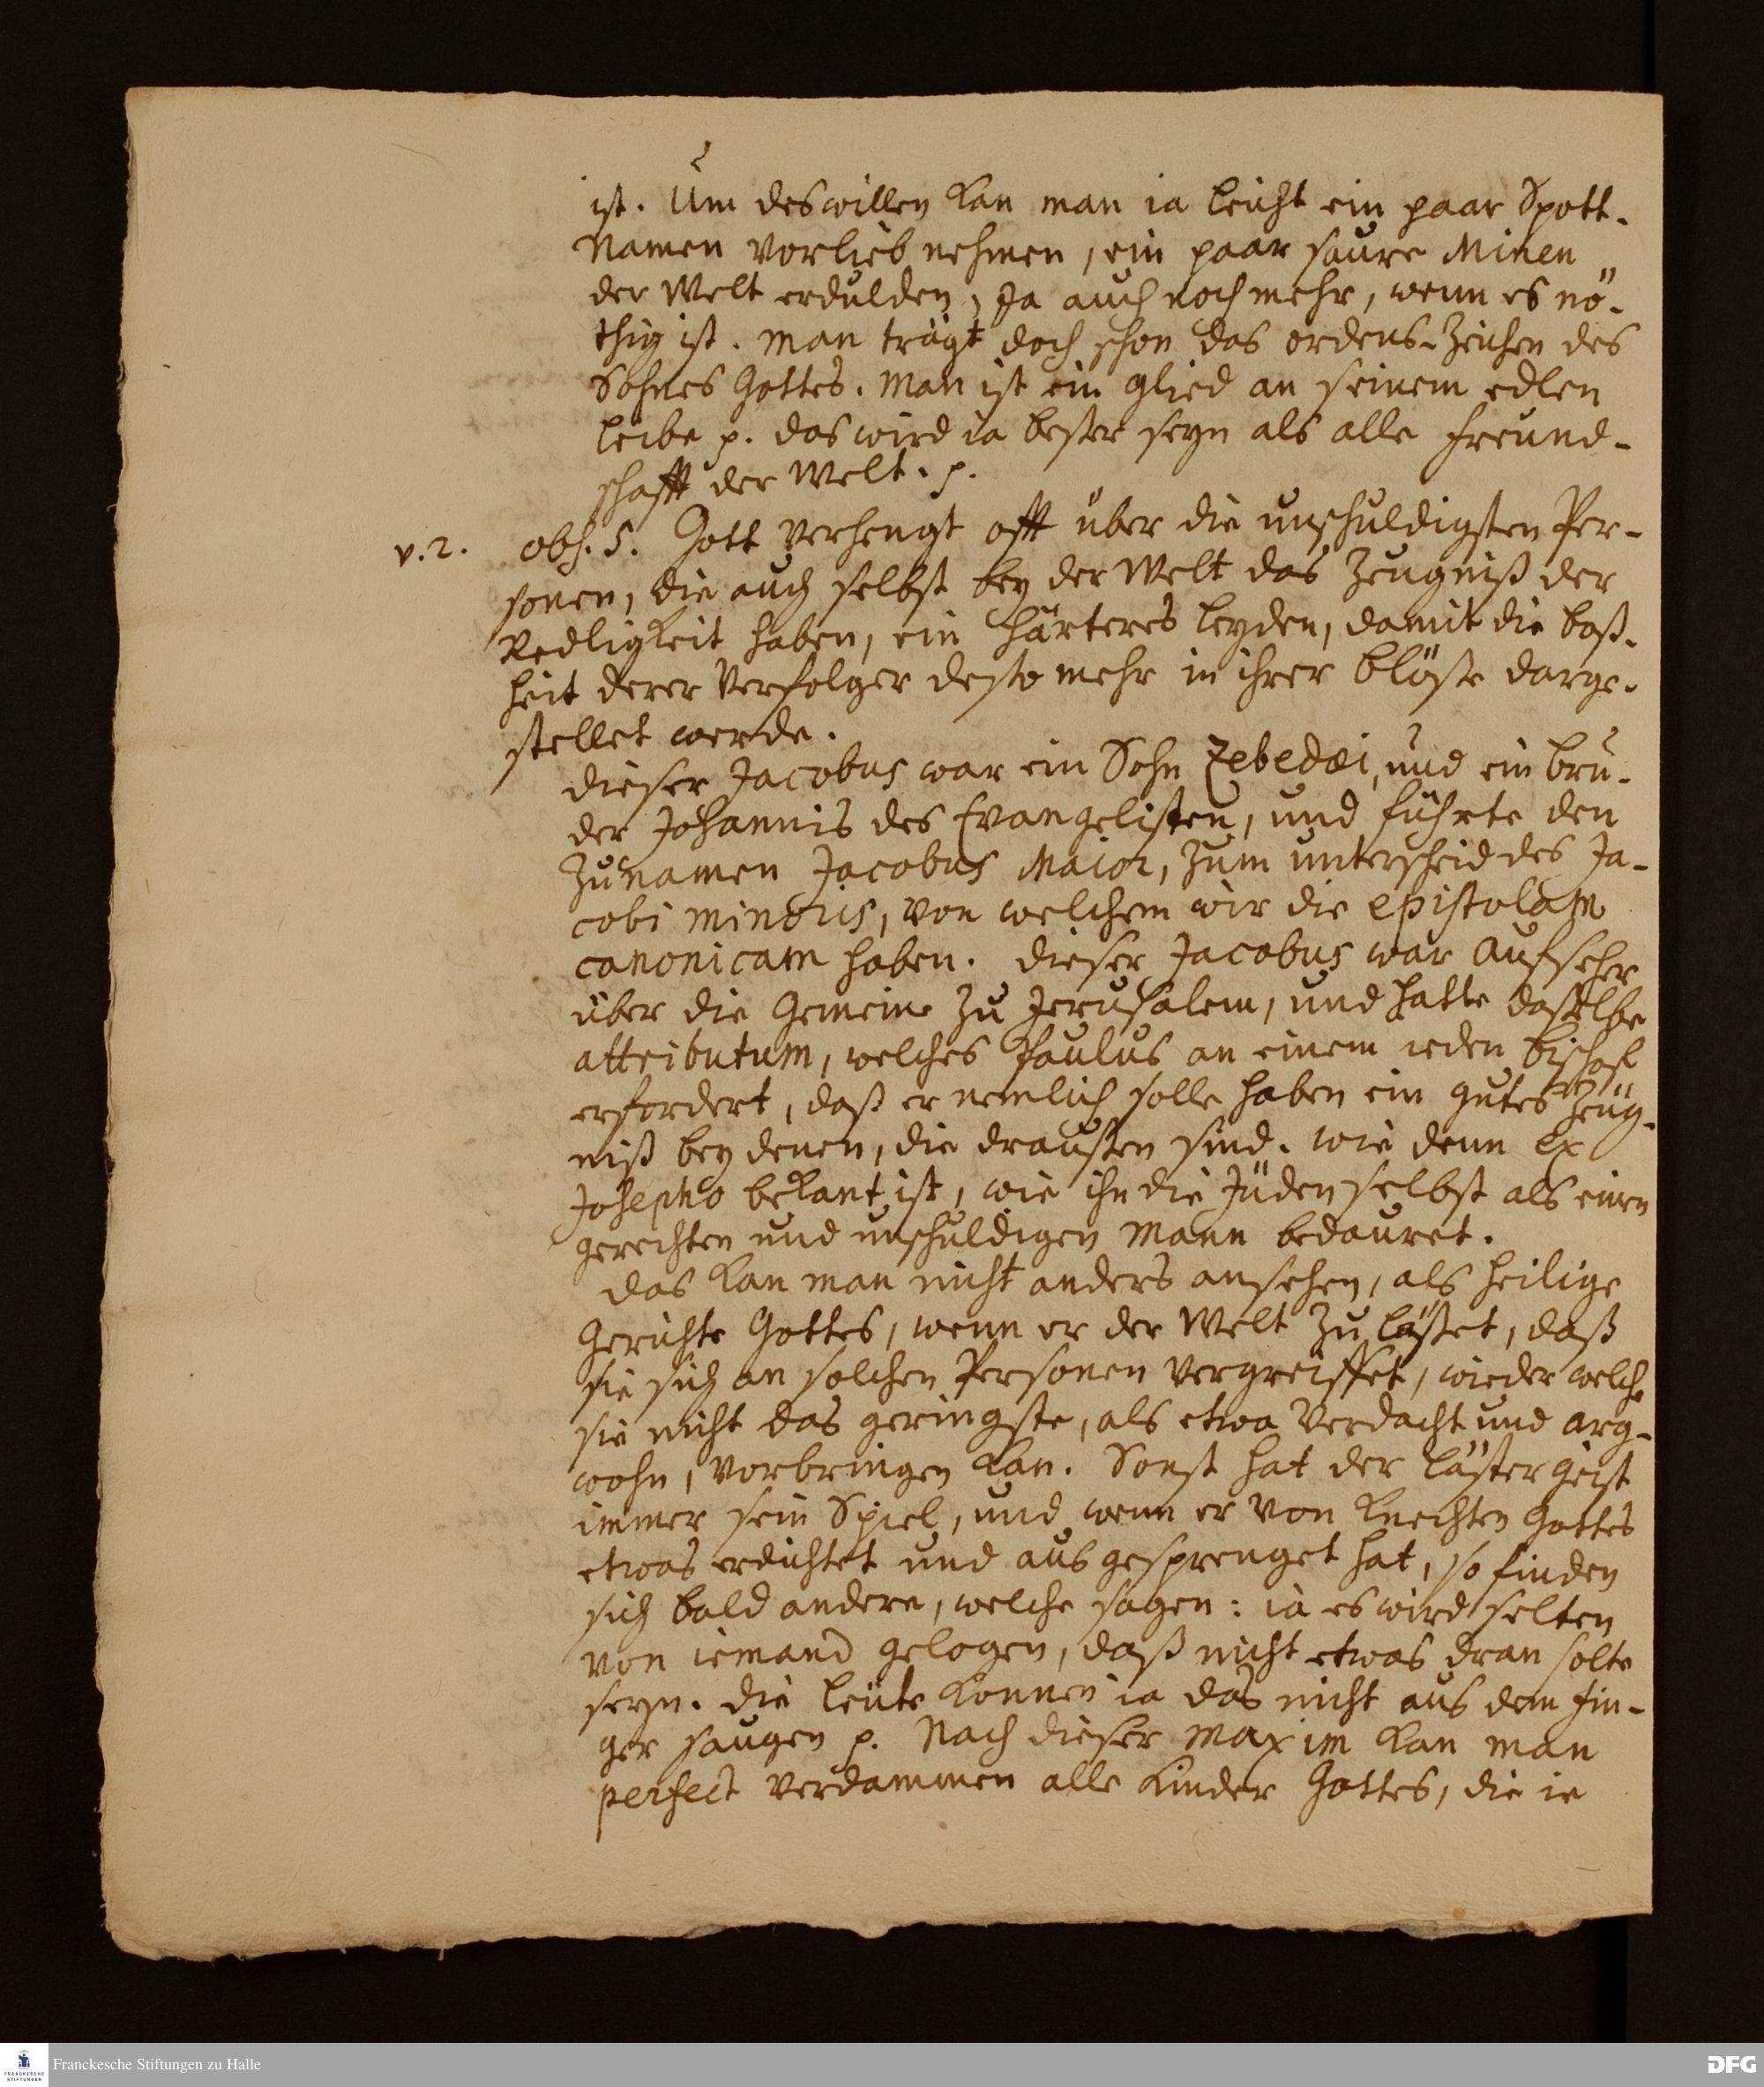 ist. Um deswillen kan man ia leicht ein paar Spott-
Namen vorlieb nehmen, ein paar saure Minen
der Welt erdulden, Ja auch noch mehr, wenn es nö-
thig ist. Man trägt doch schon das Ordens-Zeichen des
Sohnes Gottes. Man ist ein Glied an seinem edlen
Leibe p. das wird ia beßer seyn als alle Freund-
schafft der Welt. p.
v. 2. obs. 5. Gott verhengt offt über die unschuldigsten Per-
sonen, die auch selbst bey der Welt das Zeugniß der
Redligkeit haben, ein härteres Leyden, damit die Boß-
heit derer Verfolger desto mehr in ihrer Blöße darge-
stellet werde.
dieser Jacobus war ein Sohn Zebedæi, und ein Bru-
der Johannis des Evangelisten, und führte den
Zunamen Jacobus Maior, zum unterscheid des Ja-
cobi minoris, von welchem wir die epistolam
canonicam haben. dieser Jacobus war Aufseher
über die Gemeine zu Jerusalem, und hatte daßelbe
attributum, welches Paulus an einem ieden Bischof
erfordert, daß er nemlich solle haben ein gutes Zeug-
niß bey denen, die draußen sind. wie denn ex
Josepho bekant ist, wie ihn die Jüden selbst als einen
gerechten und unschuldigen Mann bedauret.
das kan man nicht anders ansehen, als heilige
Gerichte Gottes, wenn er der Welt zu läßet, daß
sie sich an solchen Personen vergreiffet, wieder welche
sie nicht das geringste, als etwa Verdacht und arg-
wohn, vorbringen kan. Sonst hat der Läster geist
immer sein Spiel, und wenn er von Knechten Gottes
etwas erdichtet und aus gesprenget hat, so finden
sich bald andere, welche sagen: ia es wird selten
von iemand gelogen, daß nicht etwas dran solte
seyn. die Leute können ia das nicht aus dem Fin-
ger saugen p. Nach dieser Maxim kan man
perfect verdammen alle Kinder Gottes, die ie
Franckesche Stiftungen zu Halle
FRANCKESCHE
STIFTUNGEN
DFG